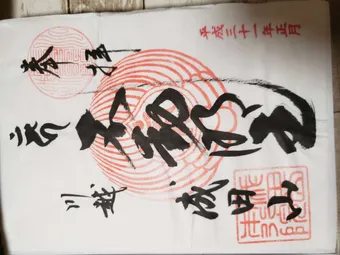 平成三十一年正月
奉拝
不動明王
川越
成田山